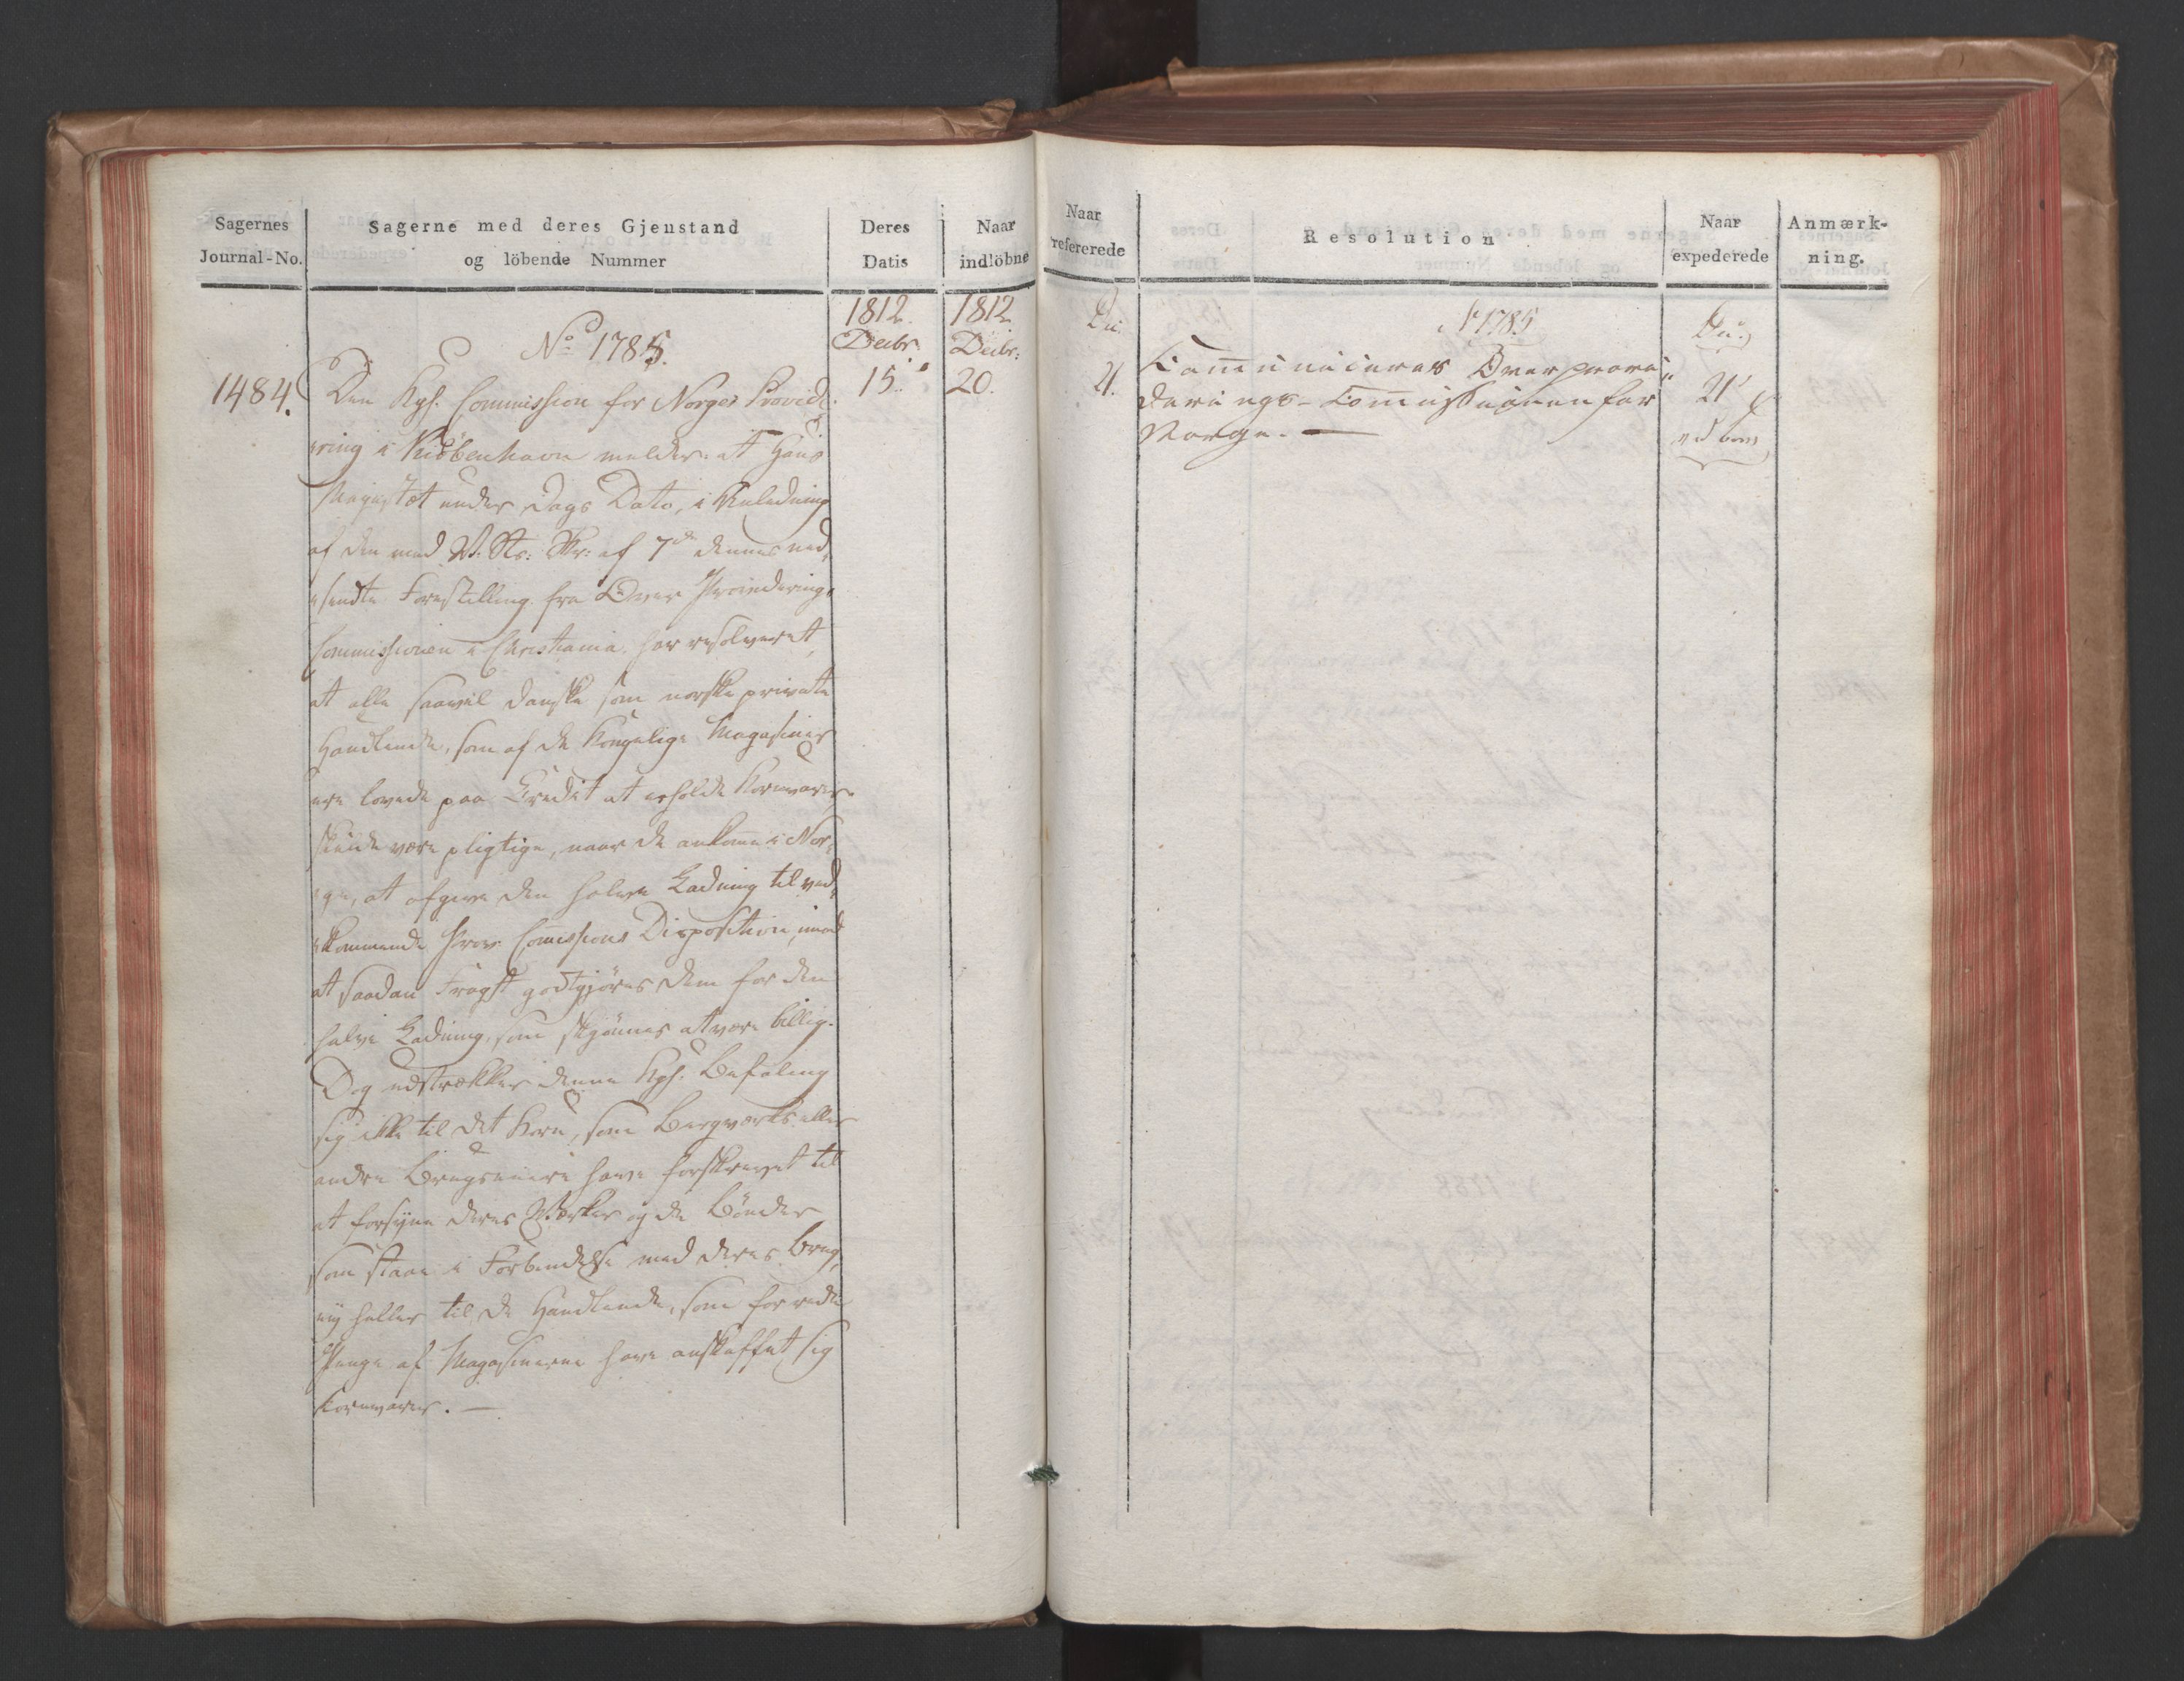 Sagernes
Journal-No.
Sagerne med deres Gjenstand
og löbende Nummer
Deres
Datis
Naar
indlöbne
Naar
refererede
Resolution
Naar
expederede
Anmærk-
ning.
1812.
Decbr.
1812
Decbr:
No 1785.
1484.
15.
20.
Den Kgl. Commission for Norges Provide-
ring i Kiöbenhavn melder: at Hans
Majestæt under Dags Dato, i Anledning
af den med V. St: Skr: af 7de dennes ned-
sendte Forestilling fra Over Provideringes
Commissionen i Christiania har resolveret,
at alle saavel danske som norske private
Handlende, som af de Kongelige Magasiner
ere lovede paa Credit at erholde Kornvarer,
skulde være pligtige, naar de ankome i Nor-
ge, at afgive den halve Ladning til ved-
kommende Prov: Comissions Disposition, imod
at saadan Fragt godtgjöres dem for den
halve Ladning, som skjönnes at være billig.
Dog udstrækker denne Kgl. Befaling
sig ikke til det Korn, som Bergværks eller
andre Brugseiere have forskrevet til
at forsyne deres Værker og de Bönder
som staae i Forbindelse med deres Brug,
ey heller til de Handlende, som for rede
Penge af Magasinerne have anskaffet sig
Kornvarer. —
21.
N 1785
Comuniceres Overprovi-
derings-Comissionen for
Norge. —
21